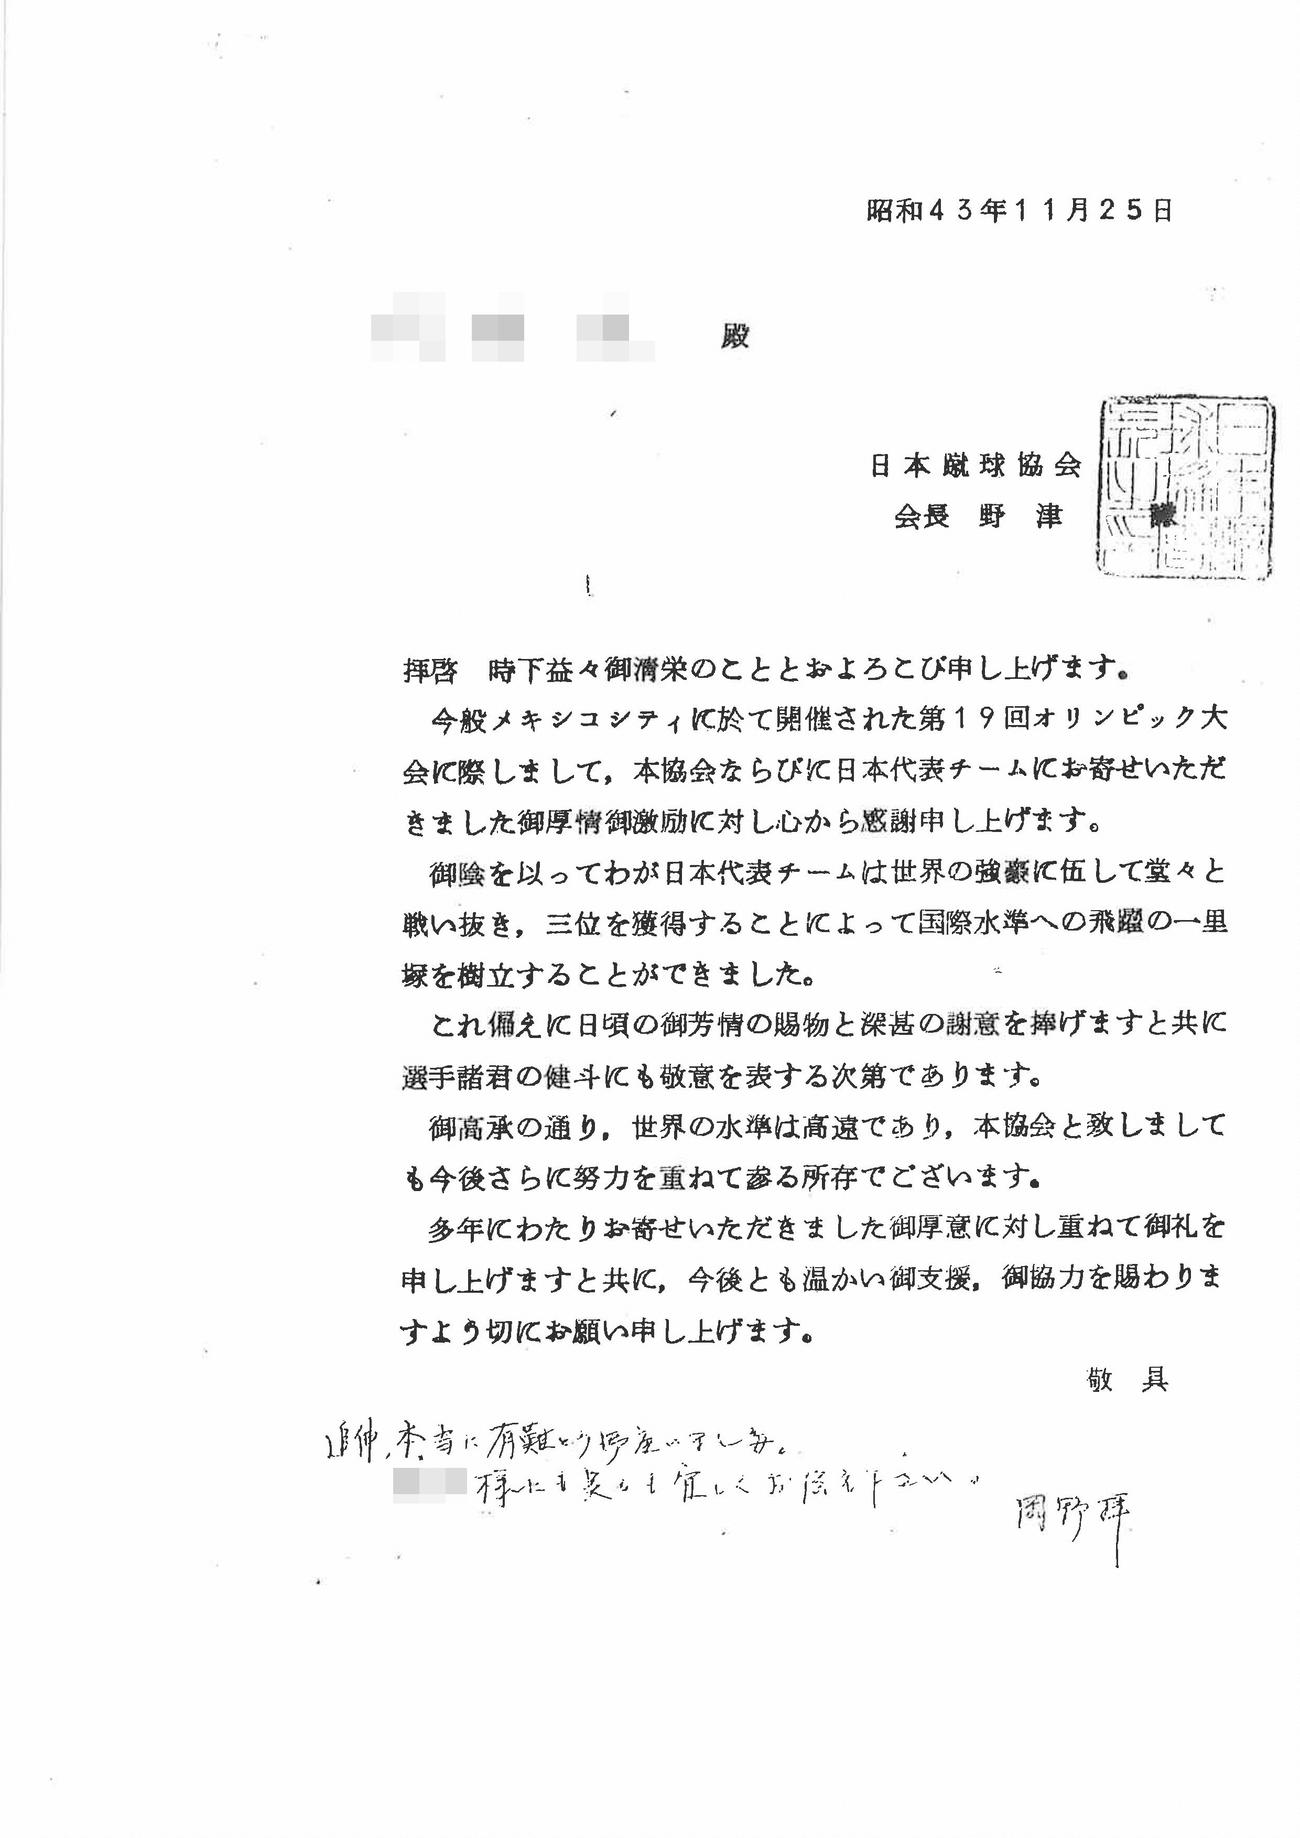 昭和43年11月25日
殿
日本蹴球協会
会長 野津 謙
拝啓 時下益々御清栄のこととおよろこび申し上げます。
今般メキシコシティに於て開催された第19回オリンピック大
会に際しまして，本協会ならびに日本代表チームにお寄せいただ
きました御厚情御激励に対し心から感謝申し上げます。
御陰を以ってわが日本代表チームは世界の強豪に伍して堂々と
戦い抜き，三位を獲得することによって国際水準への飛躍の一里
塚を樹立することができました。
これ偏えに日頃の御芳情の賜物と深甚の謝意を捧げますと共に
選手諸君の健斗にも敬意を表する次第であります。
御高承の通り，世界の水準は高遠であり，本協会と致しまして
も今後さらに努力を重ねて参る所存でございます。
多年にわたりお寄せいただきました御厚意に対し重ねて御礼を
申し上げますと共に，今後とも温かい御支援，御協力を賜わりま
すよう切にお願い申し上げます。
敬 具
追伸、本当に有難とう御座いました。
様にも呉々も宜しくお伝え下さい。
岡野拝